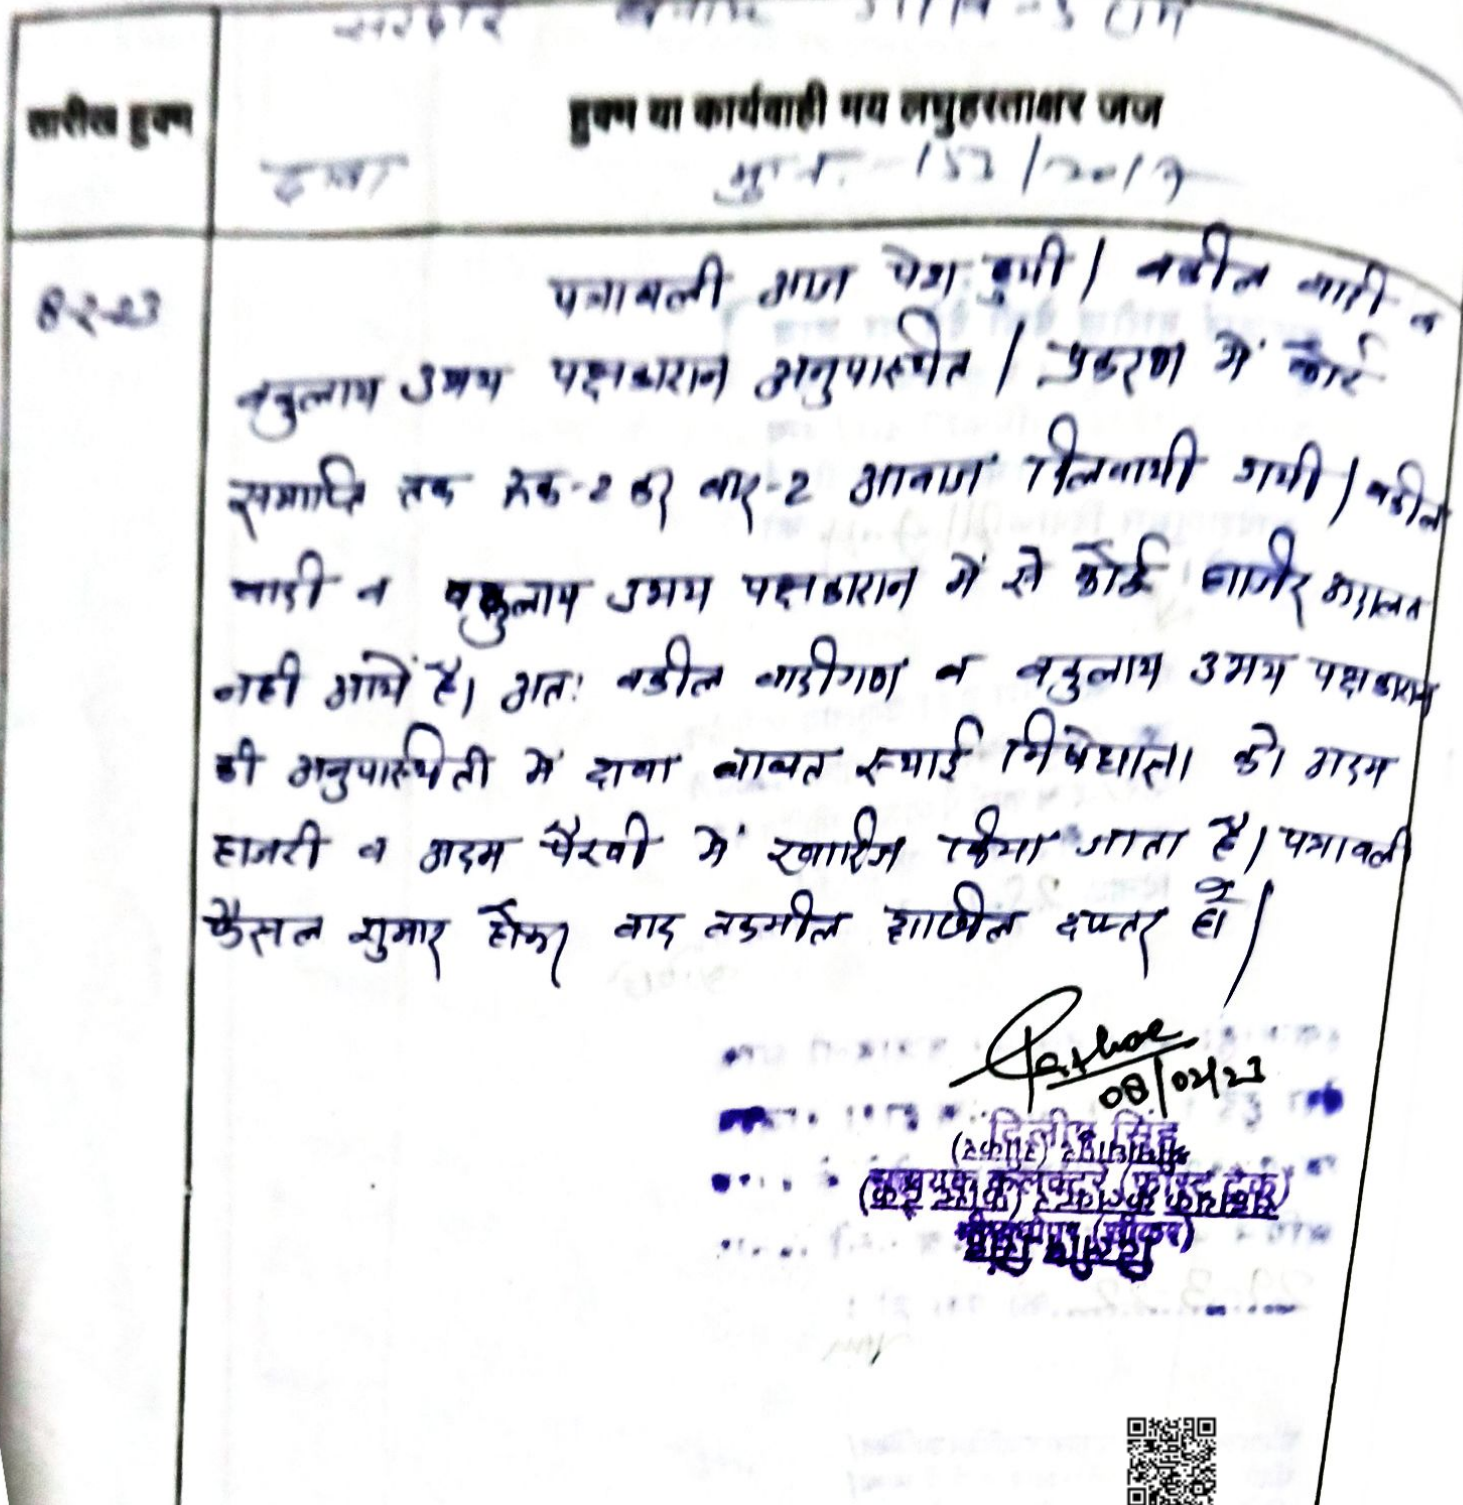 सरदार बनाम
तारीख हुक्म
हुक्म या कार्यवाही मय लघुहस्ताक्षर जज
दावा मु.न.-153/2017
8-2-23
पत्रावली आज पेश हुयी। वकील वादी व
वकुलाय उभय पक्षकारान अनुपास्थित। प्रकरण में कोर्ट
समाप्ति तक रूक-2 कर बार-2 आवाज दिलवायी गयी। वकील
वादी व वकुलाय उभय पक्षकारान में से कोई हाजीर अदालत
नही आये है। अतः वकील वादीगण व वकुलाय उभय पक्षकारान
की अनुपास्थिती में दावा बाबत स्थाई निषेधाज्ञा को अदम
हाजरी व अदम पैरवी में खारीज किया जाता है। पत्रावली
फैसल शुमार होकर बाद तकमील दाखील दफ्तर हो।
08/02/23
दिलीप सिंह
सहायक कलक्टर (फास्ट ट्रेक)
श्रीमाधोपुर (सीकर)